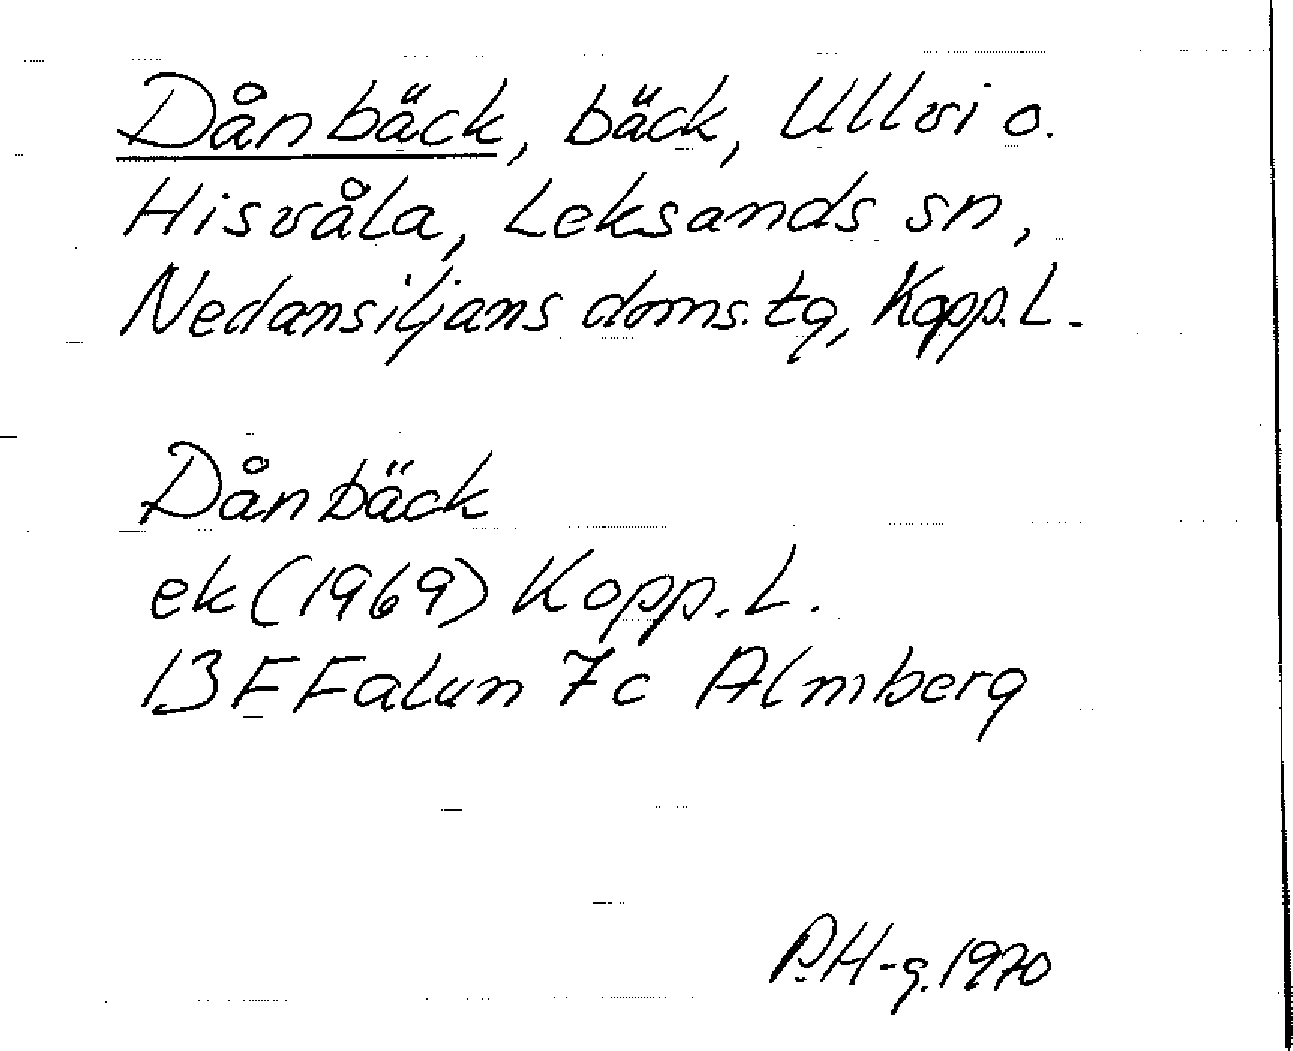 Dånbäck, bäck, Ullvi o.
Hisvåla, Leksands sn,
Nedansiljans doms.tg, Kopp.L.
Dånbäck
ek (1969) Kopp.L.
13F Falun 7c Almberg
P.H-g. 1970